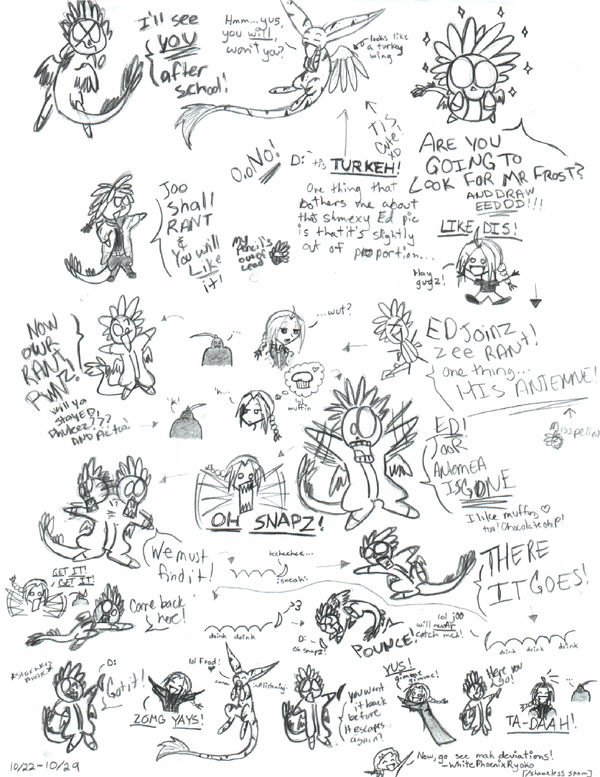 I'll see
YOU
after
school!
Hmm...yus,
you will,
won't you?
looks like
a turkey
wing
Tis
cute!
XD
O.o NO!
D: -tis TURKEH!
One thing that
bothers me about
that shmexy Ed pic
is that it's slightly
out of proportion...
ARE YOU
GOING TO
LOOK FOR MR FROST?
AND DRAW
EEDDD!!!
LIKE DIS!
Hay
guyz!
Joo
Shall
RANT
&
You will
Like
it!
My
pencil's
outta
lead
NOW
OUR
RANT
RUNZ!
will ya
stay ED!
AND pic too!
...wut?
'k!
'k...
lol
muffin
ED Joinz
zee RANT!
one thing...
HIS ANTENNE!
Misspelled
ED!
JOOR
Antenea
IS GONE
I like muffins
too! Chocolate chip!
OH SNAPZ!
We must
find it!
GET IT!
GET IT!
teeheehee...
:sneak:
THERE
IT GOES!
Come back
here!
doink doink
>3
D:
Oh snapz!
POUNCE!
lol joo
will nevar
catch meh!
doink doink doink
D:
Got it!
lol Food!
ZOMG YAYS!
You want
it back
before
it escapes
again?
YUS!
gimmee
gimme!
Here you
go!
TA-DAAH!
10/22-10/29
Now, go see mah deviations!
-WhitePhoenixRyoko
[/shameless spam]